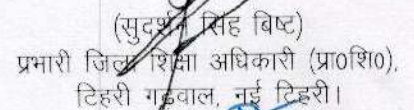 (सुदर्शन सिंह बिष्ट)
प्रभारी जिला शिक्षा अधिकारी (प्रा0शि0),
टिहरी गढ़वाल, नई टिहरी।